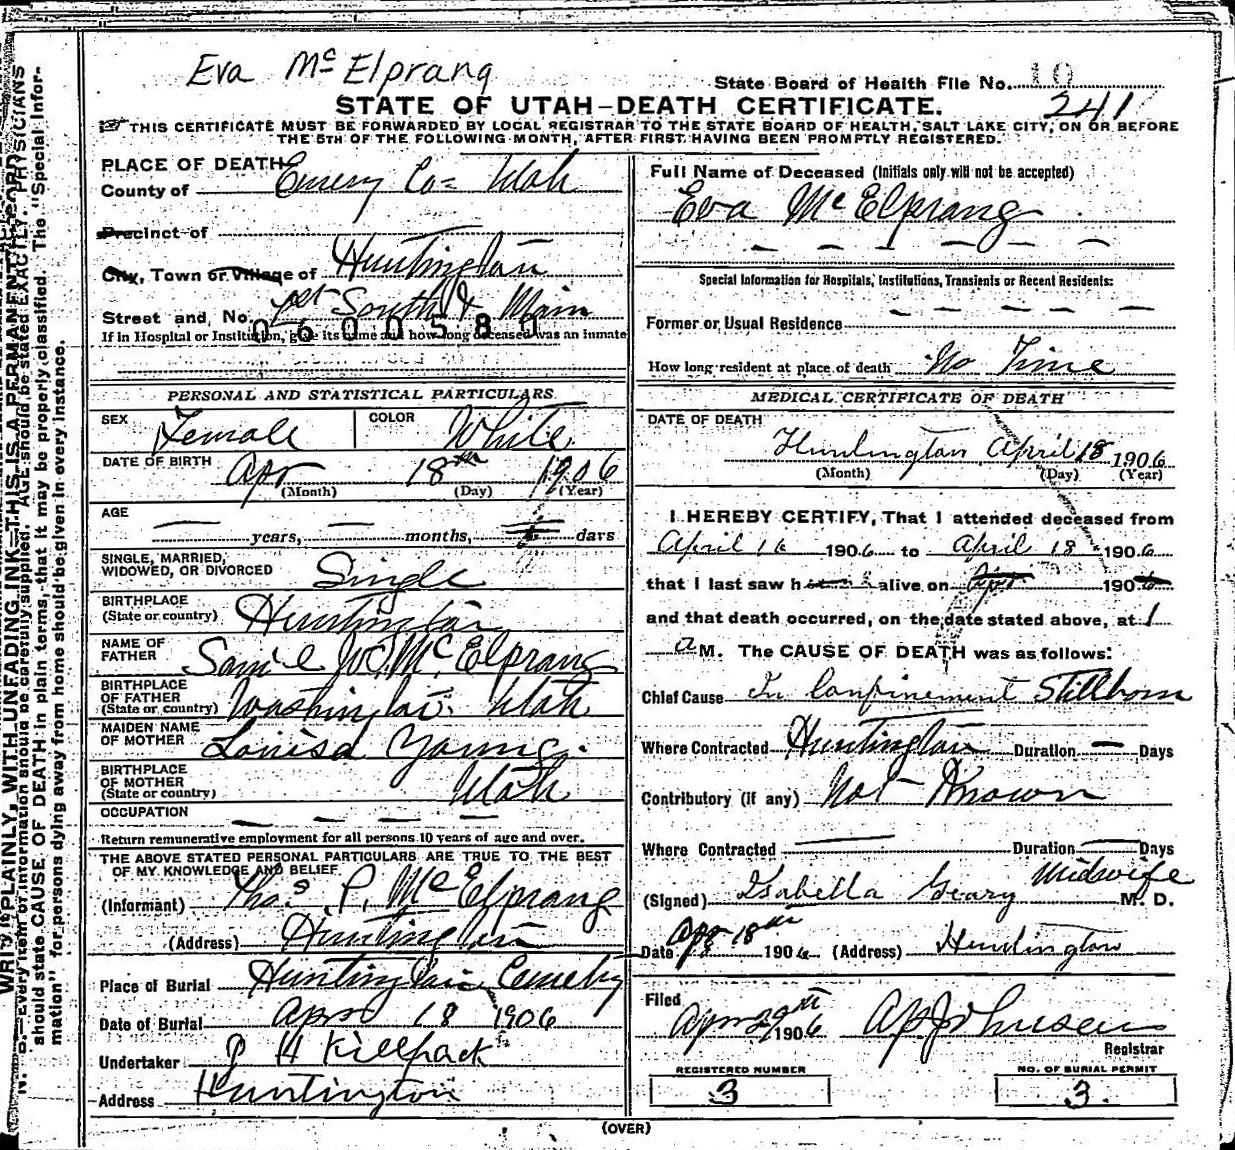 Eva McElprang
State Board of Health File No. 10
241
STATE OF UTAH—DEATH CERTIFICATE.
THIS CERTIFICATE MUST BE FORWARDED BY LOCAL REGISTRAR TO THE STATE BOARD OF HEALTH, SALT LAKE CITY, ON OR BEFORE
THE 5TH OF THE FOLLOWING MONTH, AFTER FIRST HAVING BEEN PROMPTLY REGISTERED.
PLACE OF DEATH
County of Emery Co= Utah
Precinct of
City, Town or Village of Huntington
Street and No. 1st South & Main
0600580
If in Hospital or Institution, give its name and how long deceased was an inmate
PERSONAL AND STATISTICAL PARTICULARS
SEX Female COLOR White
DATE OF BIRTH Apr 18th 1906
(Month) (Day) (Year)
AGE
— years, — months, — days
SINGLE, MARRIED,
WIDOWED, OR DIVORCED Single
BIRTHPLACE
(State or country) Huntington
NAME OF
FATHER McElprang
BIRTHPLACE
OF FATHER
(State or country) Washington Utah
MAIDEN NAME
OF MOTHER Louisa Young.
BIRTHPLACE
OF MOTHER
(State or country) Utah
OCCUPATION — — — —
Return remunerative employment for all persons 10 years of age and over.
THE ABOVE STATED PERSONAL PARTICULARS ARE TRUE TO THE BEST
OF MY KNOWLEDGE AND BELIEF.
(Informant) Thos P. McElprang
(Address) Huntington
Place of Burial Huntington Cemetry
Date of Burial Apr 18 1906
Undertaker P H Killpack
Address Huntington
Full Name of Deceased (Initials only will not be accepted)
Eva McElprang
— — — — — —
Special Information for Hospitals, Institutions, Transients or Recent Residents:
Former or Usual Residence — — — —
How long resident at place of death No Time
MEDICAL CERTIFICATE OF DEATH
DATE OF DEATH
Huntington April 18 1906
(Month) (Day) (Year)
I HEREBY CERTIFY, That I attended deceased from
April 16 1906 to April 18 1906
that I last saw h alive on Apr 190
and that death occurred, on the date stated above, at 1
a M. The CAUSE OF DEATH was as follows:
Chief Cause In Confinement Stillborn
Where Contracted Huntington Duration — Days
Contributory (if any) Not Known
Where Contracted — Duration — Days
Midwife
(Signed) Isabella Geary M. D.
Date Apr 18th 1906 (Address) Huntington
Filed
Apr 29th 1906 Registrar
REGISTERED NUMBER
3
NO. OF BURIAL PERMIT
3.
(OVER)
WRITE PLAINLY, WITH UNFADING INK—THIS IS A PERMANENT RECORD
N. B.—Every item of information should be carefully supplied. AGE should be stated EXACTLY. PHYSICIANS
should state CAUSE OF DEATH in plain terms, that it may be properly classified. The "Special Infor-
mation" for persons dying away from home should be given in every instance.